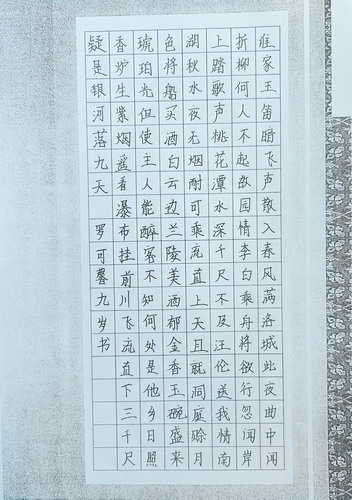 谁家玉笛暗飞声散入春风满洛城此夜曲中闻
折柳何人不起故园情李白乘舟将欲行忽闻岸
上踏歌声桃花潭水深千尺不及汪伦送我情南
湖秋水夜无烟耐可乘流直上天且就洞庭赊月
色将船买酒白云边兰陵美酒郁金香玉碗盛来
琥珀光但使主人能醉客不知何处是他乡日照
香炉生紫烟遥看瀑布挂前川飞流直下三千尺
疑是银河落九天 罗可馨九岁书